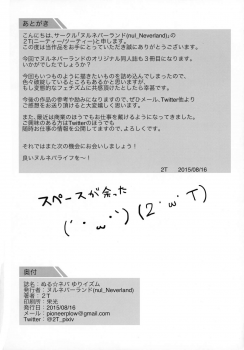 あとがき
こんにちは、サークル「ヌルネバーランド(nul_Neverland)」の
2T(ニーティー/ツーティー)と申します。
この度は当作品をお手にとっていただき誠にありがとうございます。
今回でヌルネバーランドのオリジナル同人誌も3冊目になります。
いかがでしたでしょうか?
今回もいつものように描きたいものを詰め込んでしまったので、
色々偏っているところもあるかと思いますが、
もし変態的なフェチズムに共感頂けたとしたら幸甚です。
今後の作品の参考や励みになりますので、ぜひメール、Twitter他
より感想等頂けるとうれしいです。
また、最近は商業のほうでもお仕事を戴けるようになってきました。
ご興味のある方はTwitterのほうでも
随時お仕事の情報を公開しておりますので、よろしくお願いします。
それではまた次の機会にお会いしましょう!
良いヌルネバライフを〜!
2T 2015/08/16
スペースが余った
(´・ω・`)(2・ω・T)
奥付
誌名:ぬる☆ネバ ゆりイズム
発行者:ヌルネバーランド(nul_Neverland)
著者:2T
印刷所:栄光
発行日:2015/08/16
e-mail:pioneerplow@gmail.com
Twitter:@2T_pixiv